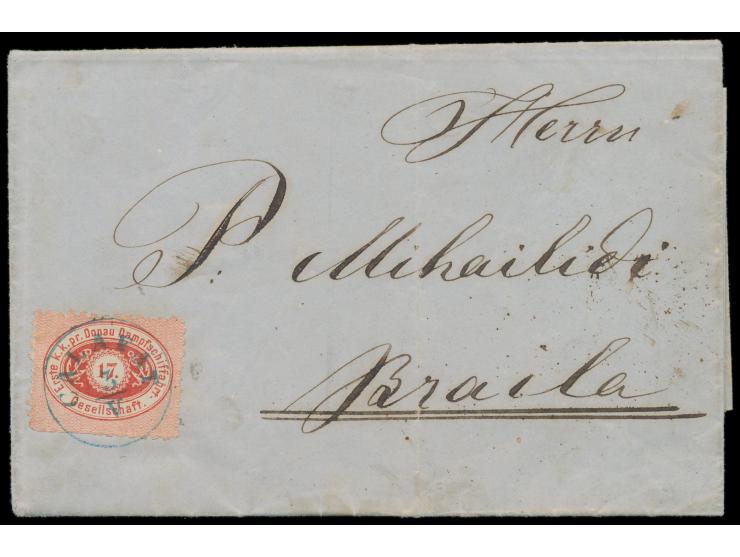 Herrn
P. Mihailidi
Braila
Erste k.k. pr. Donau Dampfschiffahrt-
17.
Gesellschaft.